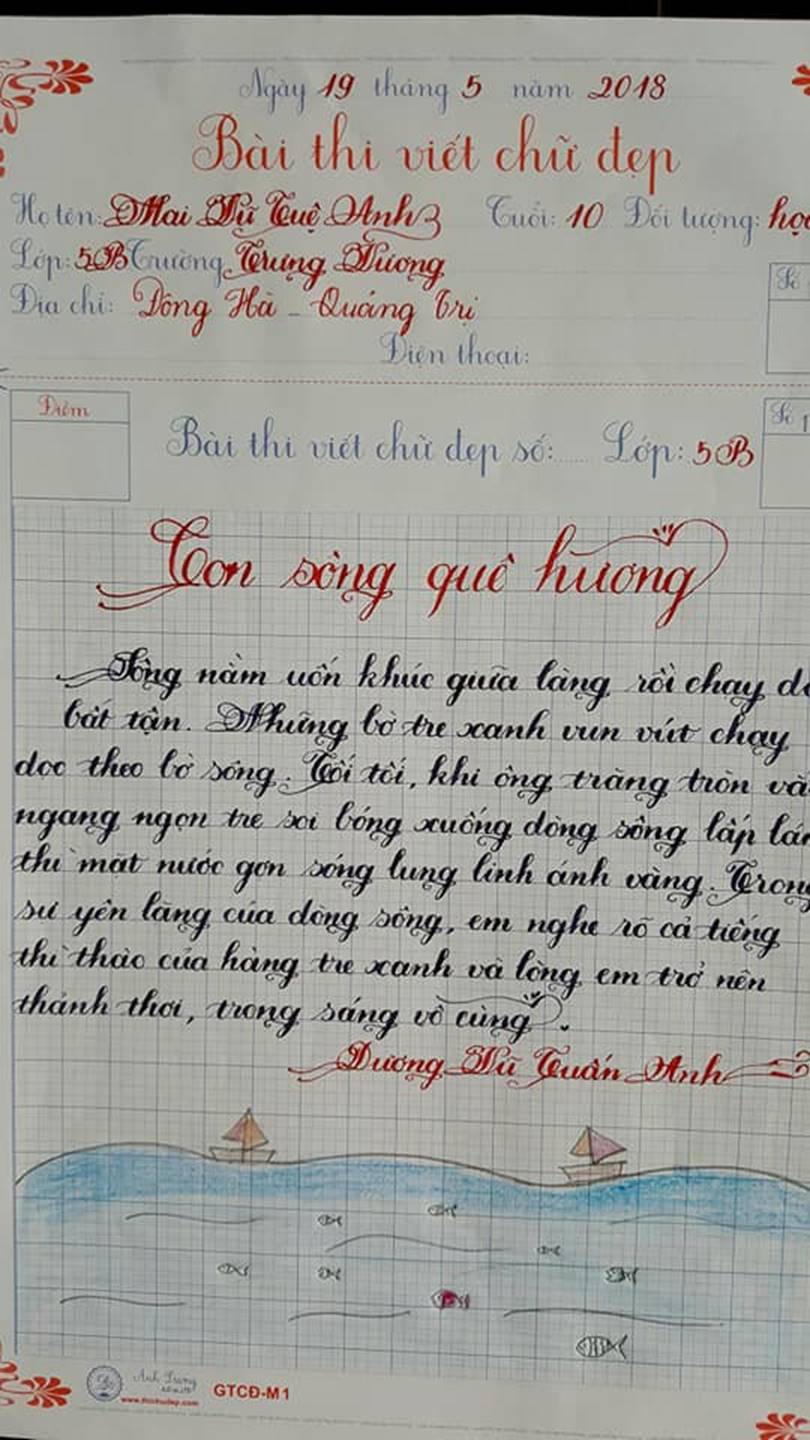 Ngày 19 tháng 5 năm 2018
Bài thi viết chữ đẹp
Họ tên: Mai Vũ Tuệ Anh Tuổi: 10 Đối tượng: học
Lớp: 5B Trường Trưng Vương
Địa chỉ: Đông Hà - Quảng Trị
Số
Điện thoại:
Điểm
Số
Bài thi viết chữ đẹp số:...... Lớp: 5B
Con sông quê hương
Sông nằm uốn khúc giữa làng rồi chạy
bất tận. Những bờ tre xanh vun vút chạy
dọc theo bờ sông. Tối tối, khi ông trăng tròn
ngang ngọn tre soi bóng xuống dòng sông lấp
thì mặt nước gợn sóng lung linh ánh vàng. Trong
sự yên lặng của dòng sông, em nghe rõ cả tiếng
thì thào của hàng tre xanh và lòng em trở nên
thảnh thơi, trong sáng vô cùng.
Dương Vũ Tuấn Anh
GTCĐ-M1